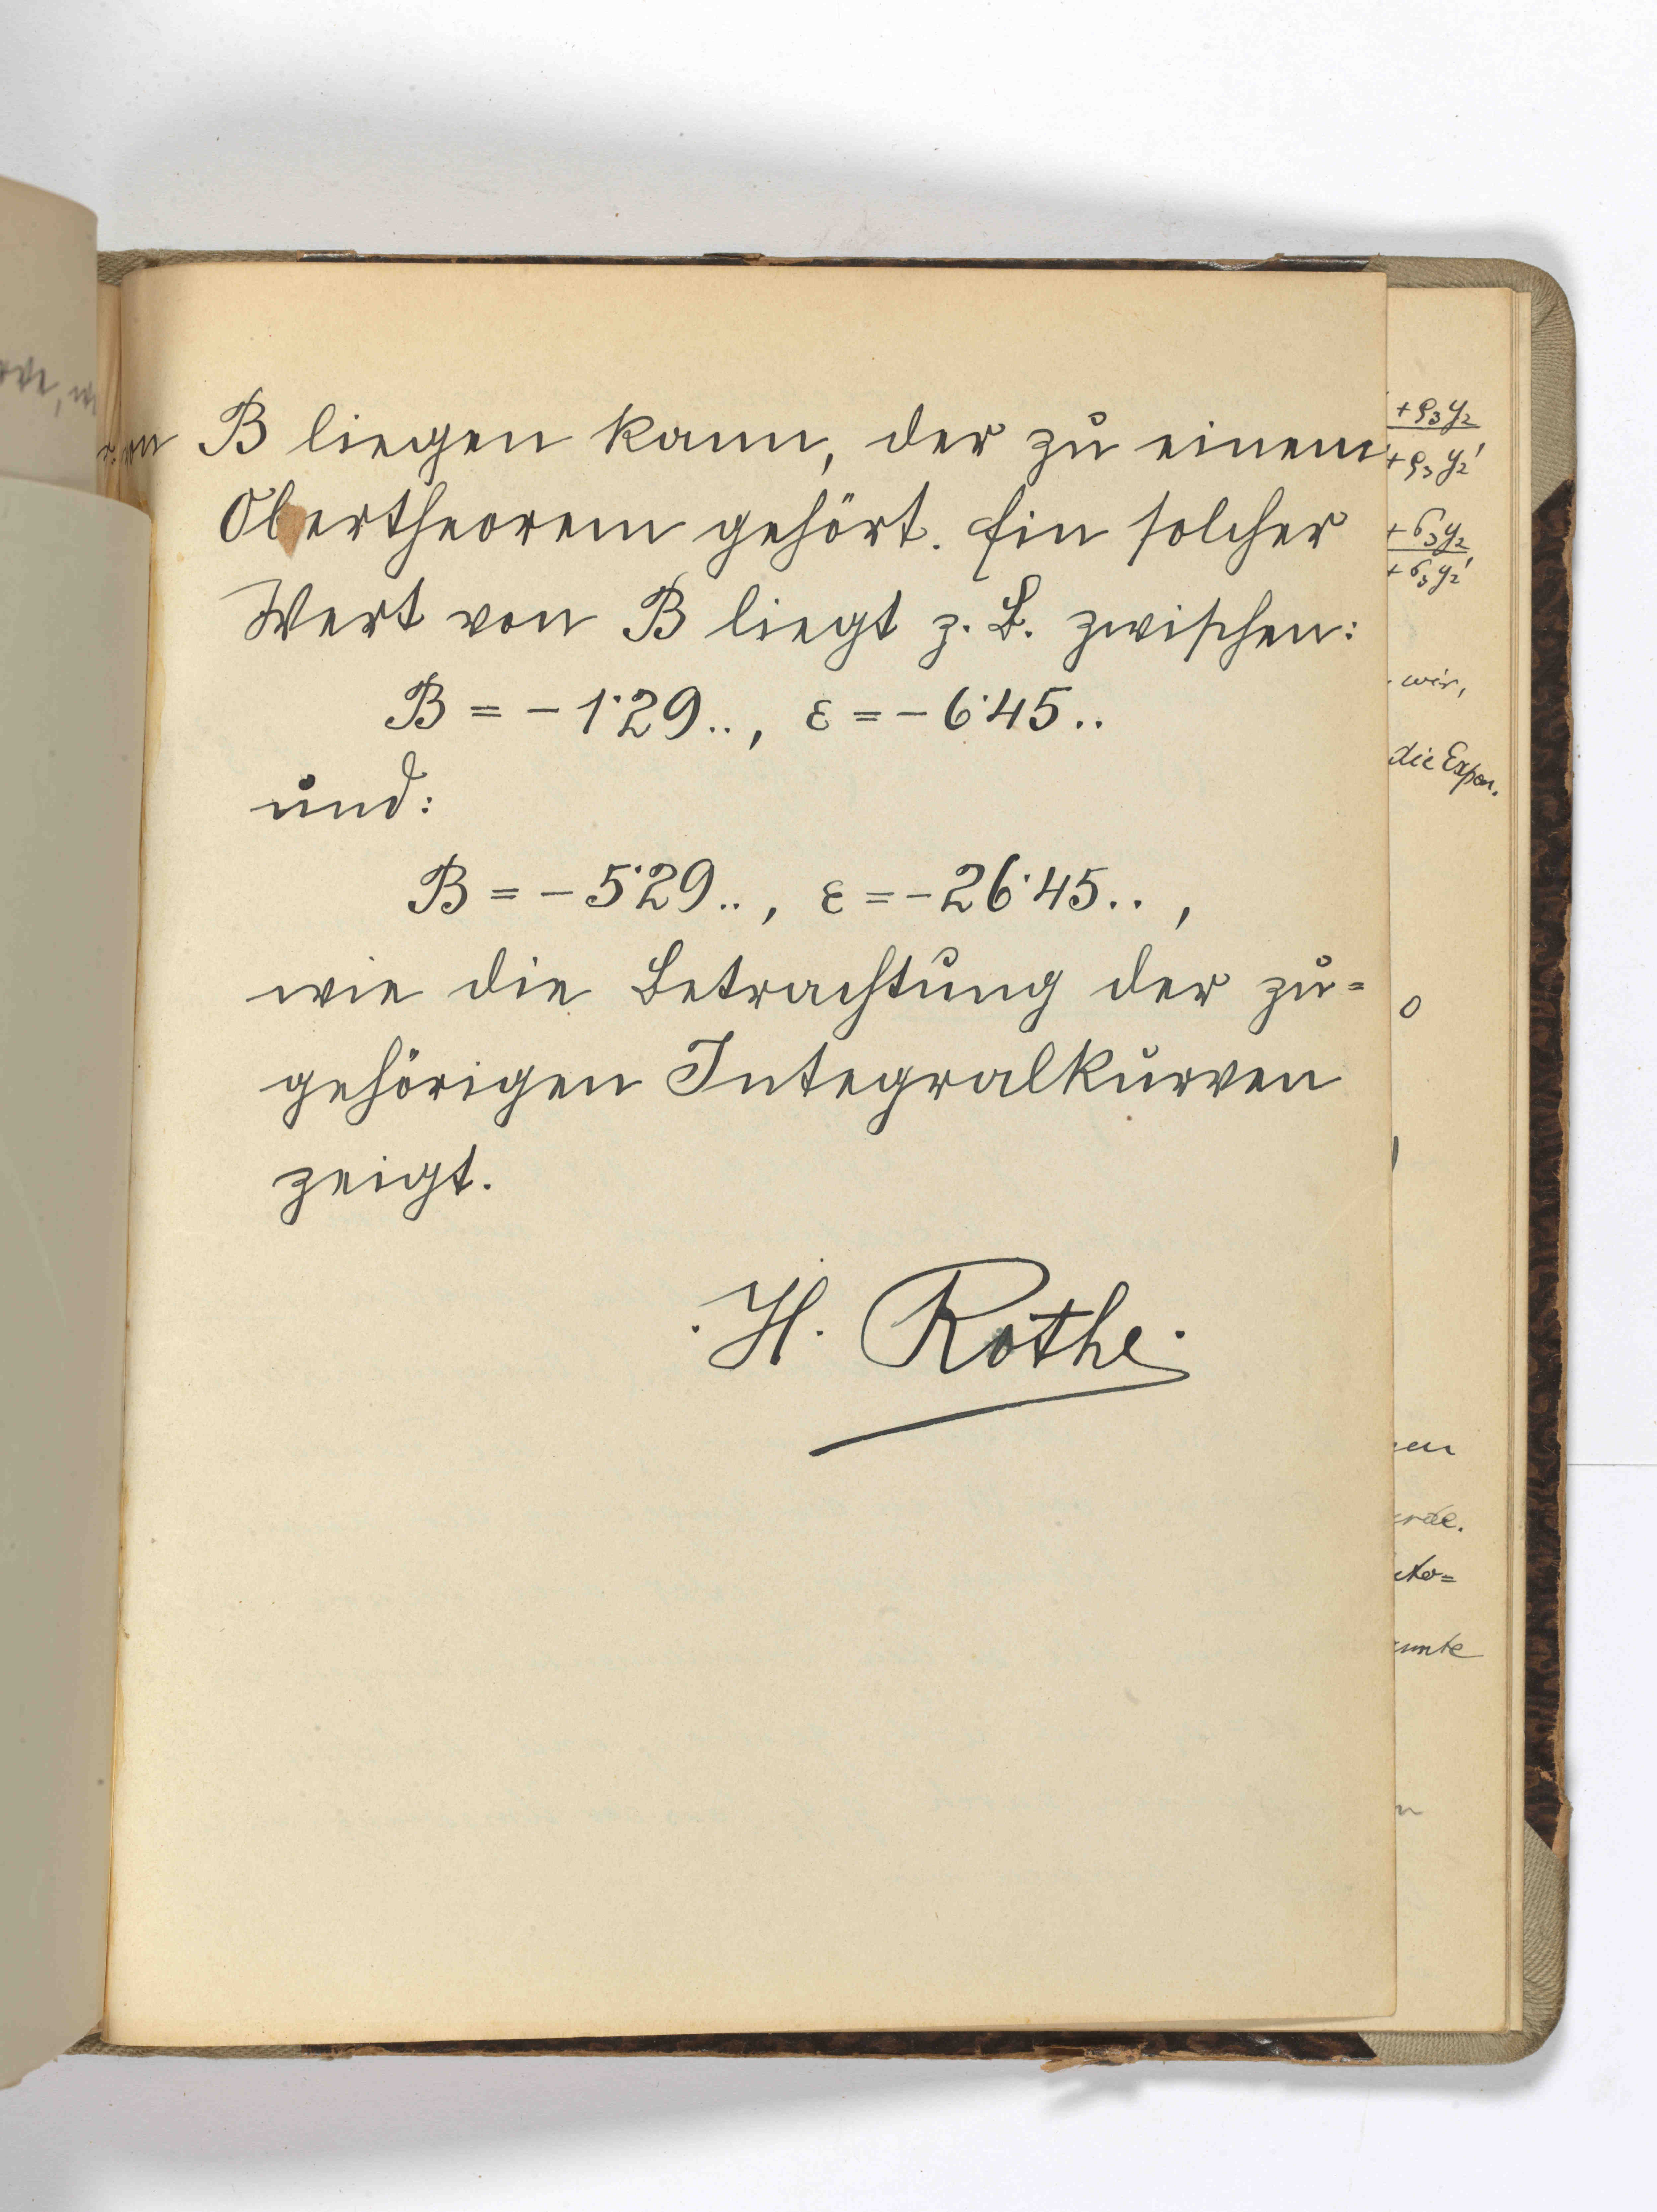 von B liegen kann, der zu einem
Obertheorem gehört. Ein solcher
Wert von B liegt z. B. zwischen:
B = - 1·29.., ε = - 6·45..
und:
B = - 5·29.., ε = - 26·45.. ,
wie die Betrachtung der zu=
gehörigen Integralkurven
zeigt.
H. Rothe.
+ ρ₃y₂
+ ρ₃y₂'
+ σ₃y₂
+ σ₃y₂'
wir,
die Expon.
0